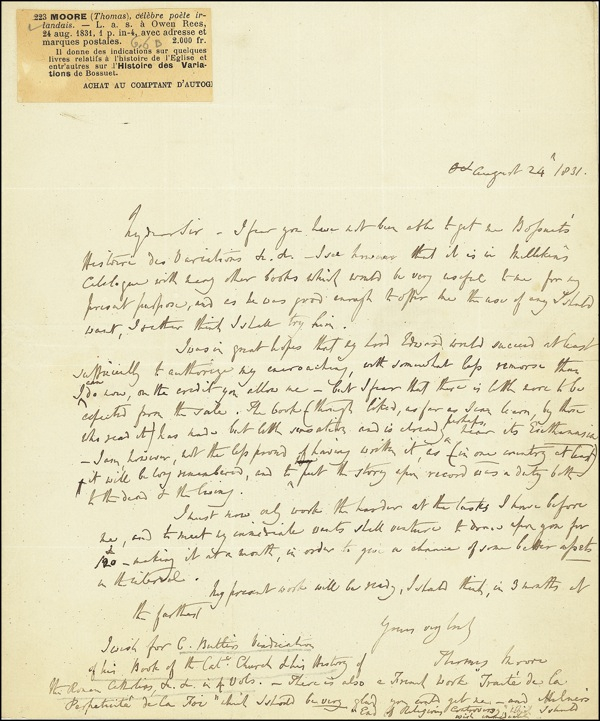 223 MOORE (Thomas), célèbre poète ir-
landais. — L. a. s. à Owen Rees,
24 aug. 1831, 1 p. in-4, avec adresse et
marques postales. 2.000 fr.
Il donne des indications sur quelques
livres relatifs à l'histoire de l'Eglise et
entr'autres sur l'Histoire des Varia-
tions de Bossuet.
ACHAT AU COMPTANT D'AUTOG
August 24th 1831.
My dear Sir – I fear you have not been able to get me Bossuet's
Histoire des Variations &. &. – I see however that it is in Millikin's
Catalogue with many other books which would be very useful to me for my
present purpose, and as he was good enough to offer me the use of any I should
want, I rather think I shall try him.
I was in great hopes that my Lord Edward would succeed at least
sufficiently to authorize my encroaching, with somewhat less remorse than
I can do now, on the credit you allow me – but I fear that there is little more to be
expected from the sale. The book (though liked, as far as I can learn, by those
who read it) has made but little sensation and is already, perhaps, near its Euthanasia
– I am, however, not the less proud of having written it, as (in one country at least)
it will be long remembered, and to put the story upon record was a duty both
to the dead & the living.
I must now only work the harder at the tasks I have before
me, and to meet my immediate wants shall venture to draw upon you for
– making it at a month, in order to give a chance of some better assets
in the interval.
My present work will be ready, I should think, in 3 months at
the farthest
Yours very truly
Thomas Moore
I wish for C. Butler's Vindication
of his Book of the Cath. Church & his History of
the Roman Catholics, &. &. in 4 Vols. – There is also a French work Traité de la
Perpetuité de la Foi which I should be very glad you could get me – and Milner's
End of Religious Controversy, with I should